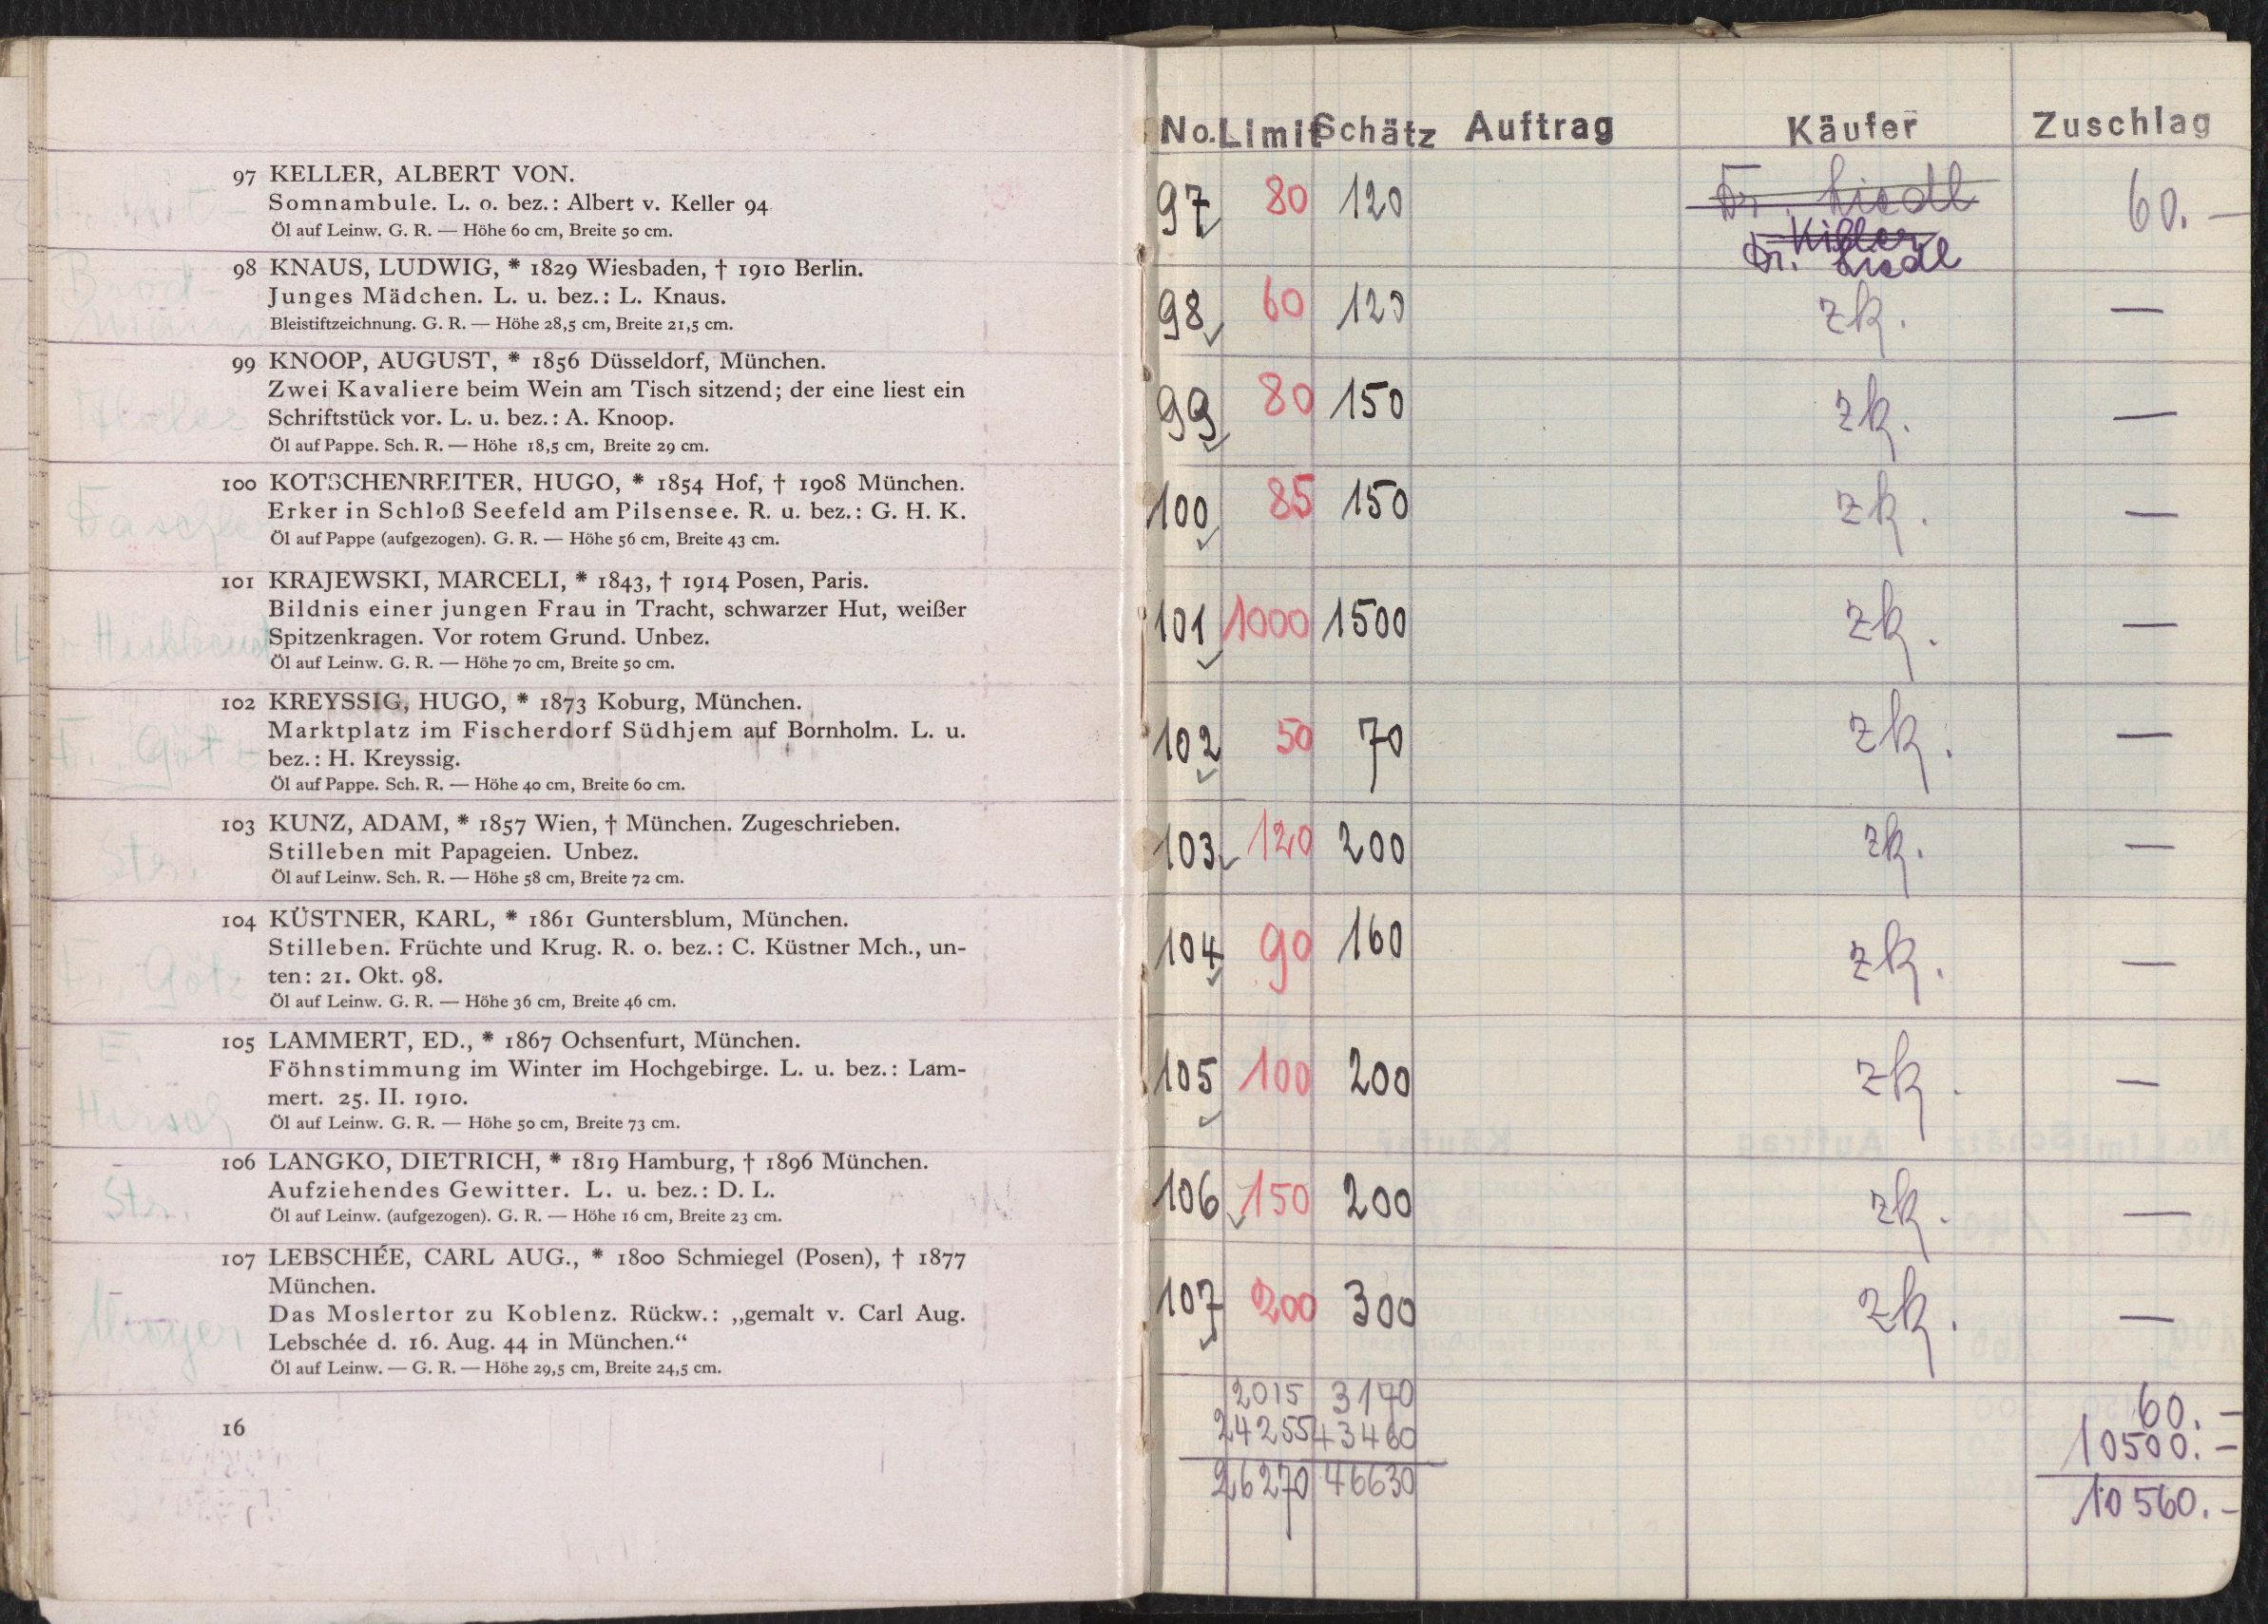 97 KELLER, ALBERT VON.
Somnambule. L. o. bez.: Albert v. Keller 94
Öl auf Leinw. G. R. — Höhe 60 cm, Breite 50 cm.
98 KNAUS, LUDWIG, * 1829 Wiesbaden, † 1910 Berlin.
Junges Mädchen. L. u. bez.: L. Knaus.
Bleistiftzeichnung. G. R. — Höhe 28,5 cm, Breite 21,5 cm.
99 KNOOP, AUGUST, * 1856 Düsseldorf, München.
Zwei Kavaliere beim Wein am Tisch sitzend; der eine liest ein
Schriftstück vor. L. u. bez.: A. Knoop.
Öl auf Pappe. Sch. R. — Höhe 18,5 cm, Breite 29 cm.
100 KOTSCHENREITER, HUGO, * 1854 Hof, † 1908 München.
Erker in Schloß Seefeld am Pilsensee. R. u. bez.: G. H. K.
Öl auf Pappe (aufgezogen). G. R. — Höhe 56 cm, Breite 43 cm.
101 KRAJEWSKI, MARCELI, * 1843, † 1914 Posen, Paris.
Bildnis einer jungen Frau in Tracht, schwarzer Hut, weißer
Spitzenkragen. Vor rotem Grund. Unbez.
Öl auf Leinw. G. R. — Höhe 70 cm, Breite 50 cm.
102 KREYSSIG, HUGO, * 1873 Koburg, München.
Marktplatz im Fischerdorf Südhjem auf Bornholm. L. u.
bez.: H. Kreyssig.
Öl auf Pappe. Sch. R. — Höhe 40 cm, Breite 60 cm.
103 KUNZ, ADAM, * 1857 Wien, † München. Zugeschrieben.
Stilleben mit Papageien. Unbez.
Öl auf Leinw. Sch. R. — Höhe 58 cm, Breite 72 cm.
104 KÜSTNER, KARL, * 1861 Guntersblum, München.
Stilleben. Früchte und Krug. R. o. bez.: C. Küstner Mch., un-
ten: 21. Okt. 98.
Öl auf Leinw. G. R. — Höhe 36 cm, Breite 46 cm.
105 LAMMERT, ED., * 1867 Ochsenfurt, München.
Föhnstimmung im Winter im Hochgebirge. L. u. bez.: Lam-
mert. 25. II. 1910.
Öl auf Leinw. G. R. — Höhe 50 cm, Breite 73 cm.
106 LANGKO, DIETRICH, * 1819 Hamburg, † 1896 München.
Aufziehendes Gewitter. L. u. bez.: D. L.
Öl auf Leinw. (aufgezogen). G. R. — Höhe 16 cm, Breite 23 cm.
107 LEBSCHÉE, CARL AUG., * 1800 Schmiegel (Posen), † 1877
München.
Das Moslertor zu Koblenz. Rückw.: „gemalt v. Carl Aug.
Lebschée d. 16. Aug. 44 in München.“
Öl auf Leinw. — G. R. — Höhe 29,5 cm, Breite 24,5 cm.
16
No. Limit Schätz Auftrag Käufer Zuschlag
97 80 120 Dr. Liedl 60.—
Dr. Liedl
98 60 120 zk. —
99 80 150 zk. —
100 85 150 zk. —
101 1000 1500 zk. —
102 50 70 zk. —
103 120 200 zk. —
104 90 160 zk. —
105 100 200 zk. —
106 150 200 zk. —
107 200 300 zk. —
2015 3170 60.—
24255 43460 10500.—
26270 46630 10560.—